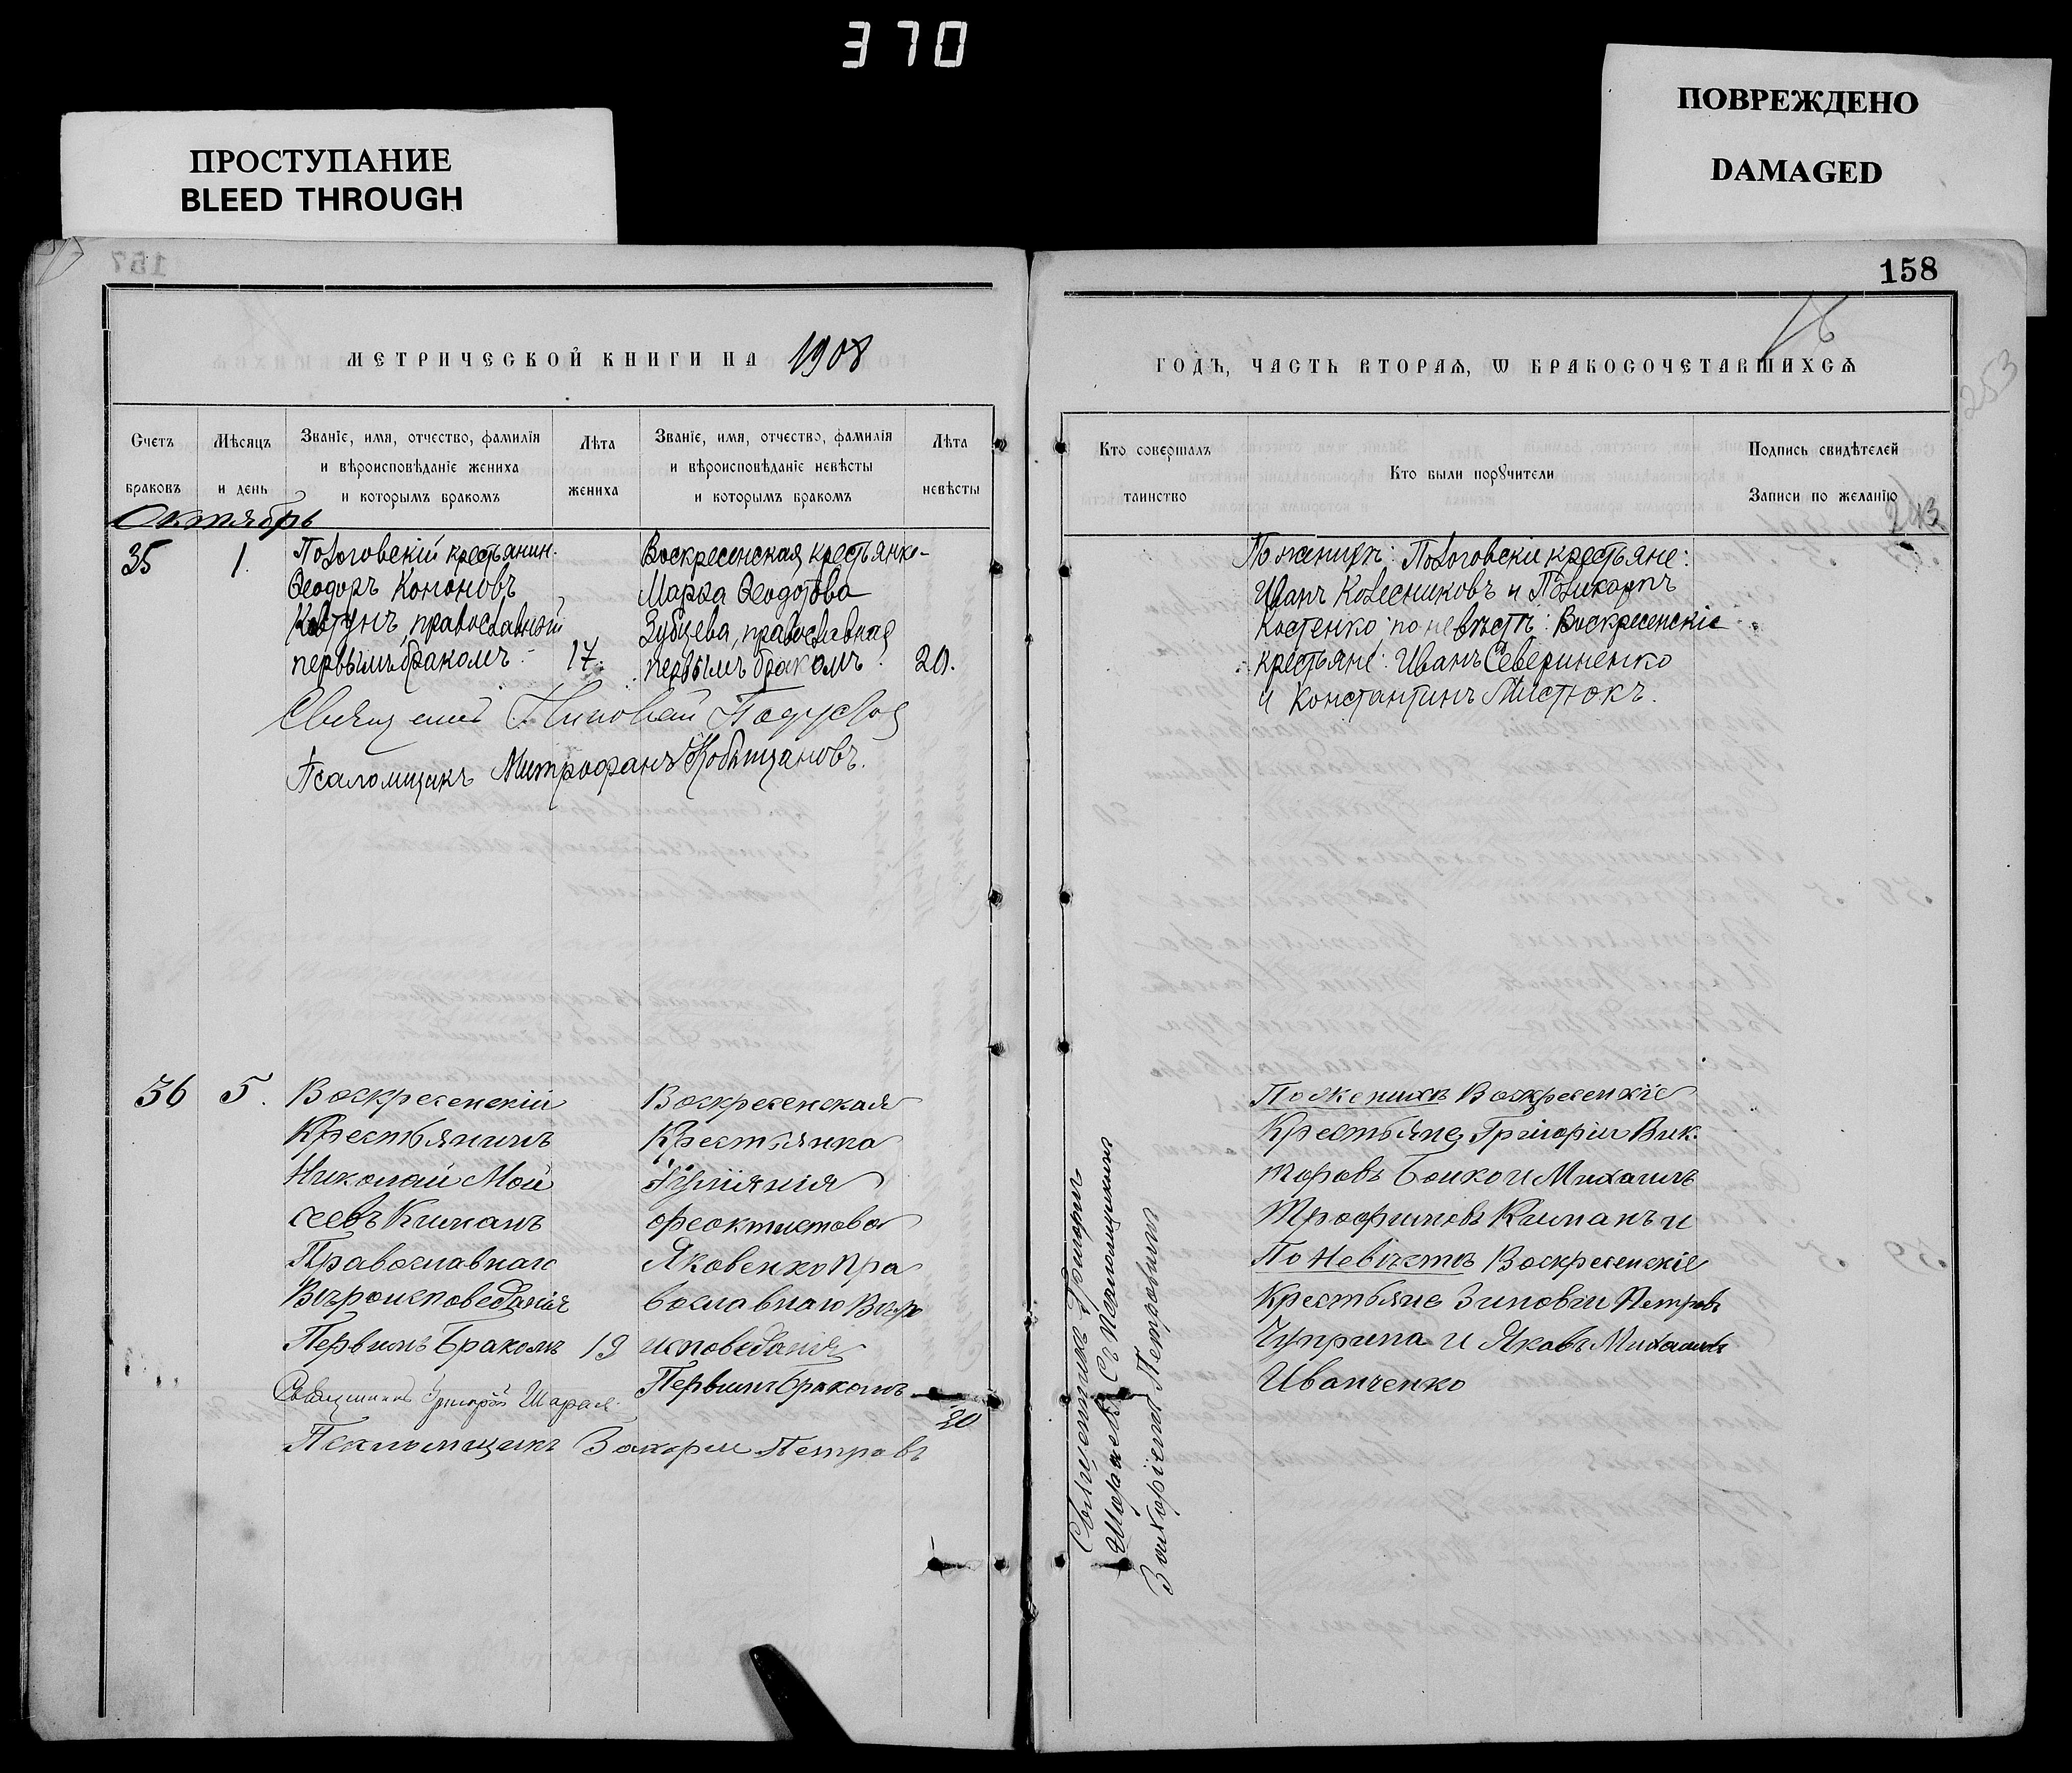 370
ПРОСТУПАНИЕ
BLEED THROUGH
ПОВРЕЖДЕНО
DAMAGED
157
158
16
253
МЕТРИЧЕСКОЙ КНИГИ НА 1908
ГОДЪ, ЧАСТЬ ВТОРАѦ, Ѡ БРАКОСОЧЕТАВШИХСѦ
Счетъ браковъ
Мѣсяцъ и день
Званіе, имя, отчество, фамилія
и вѣроисповѣданіе жениха
и которымъ бракомъ
Лѣта жениха
Званіе, имя, отчество, фамилія
и вѣроисповѣданіе невѣсты
и которымъ бракомъ
Лѣта невѣсты
Кто совершалъ таинство
Кто были порꙋчители
Подпись свидѣтелей
Записи по желанію
243
Октябрь
35
1.
Пологовскій крестьянин
Ѳеодоръ Кононовъ
Ковтунъ, православный
первымъ бракомъ
17.
Воскресенская крестьянка
Марѳа Ѳеодотова
Зубцева, православная
первымъ бракомъ
20.
По женихѣ: Пологовскіи крестьяне:
Иванъ Колесниковъ и Поликарпъ
Костенко по невѣстѣ: Воскресенскіе
крестьяне: Иванъ Севериненко
и Константинъ Мистюкъ.
Псаломщикъ Митрофанъ Кобыщановъ.
36
5.
Воскресенскій
Крестьянинъ
Николай Мой
сеевъ Киманъ
Православнаго
Вѣроисповеданія
Первымъ Бракомъ
19
Воскресенская
Крестьянка
Ѳеоктистова
Яковенко Пра
вославнаго Вѣро
исповеданія
Первымъ Бракомъ
20
Священникъ Григорій
Псаломщикъ Захарій Петровъ
Священникъ Григорій
С Псаломщикомъ
Захаріемъ Петровымъ
По Женихѣ Воскресенскіе
Крестьяне Григорій Вик
торовъ Бойко и Михаилъ
Трофимовъ Киманъ и
По Невѣстѣ Воскресенскіе
Крестьяне Зиновій Петровъ
Чуприна и Яковъ Михаиловъ
Иванченко